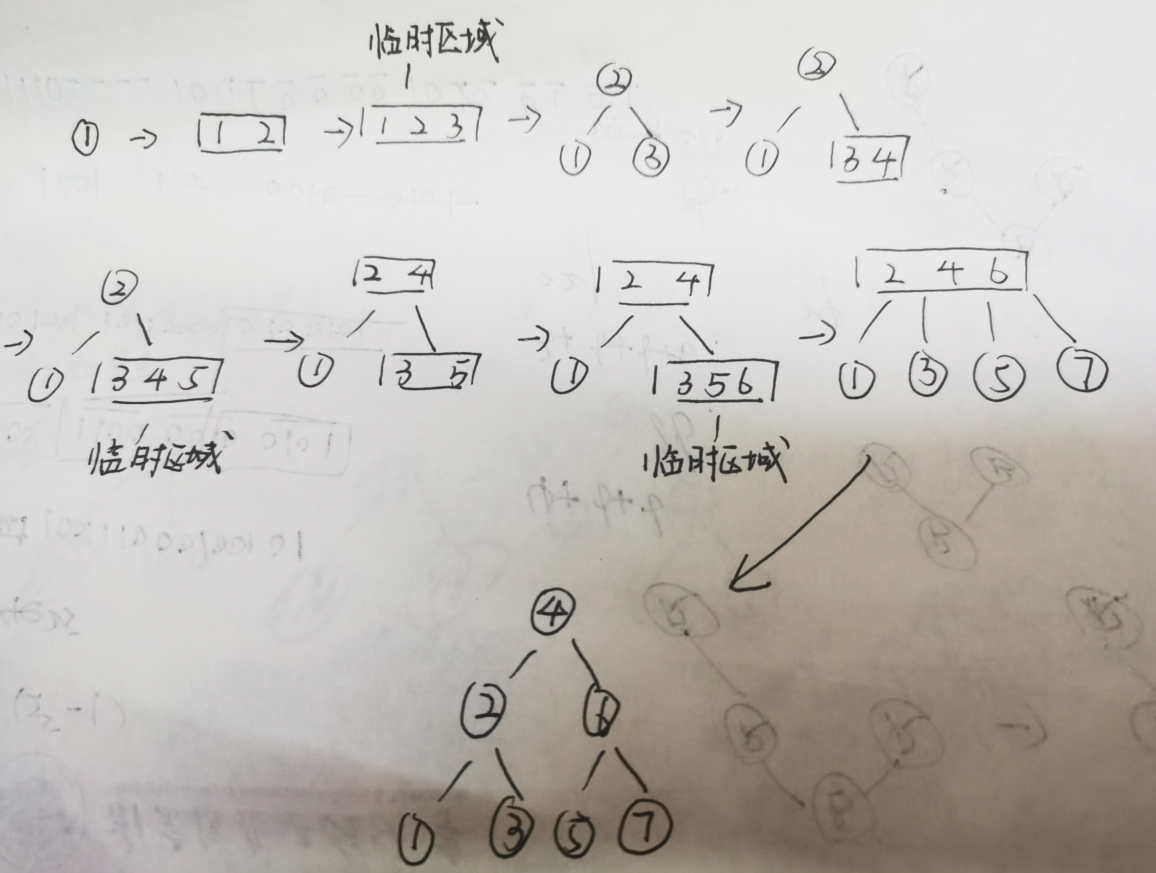 临时区域
① → 1 2 → 1 2 3 → ② ① ③ → ② ① 3 4
→ ② ① 3 4 5 → 2 4 ① 3 5 → 2 4 ① 3 5 6 → 2 4 6 ① ③ ⑤ ⑦
临时区域 临时区域
④
② ⑥
① ③ ⑤ ⑦